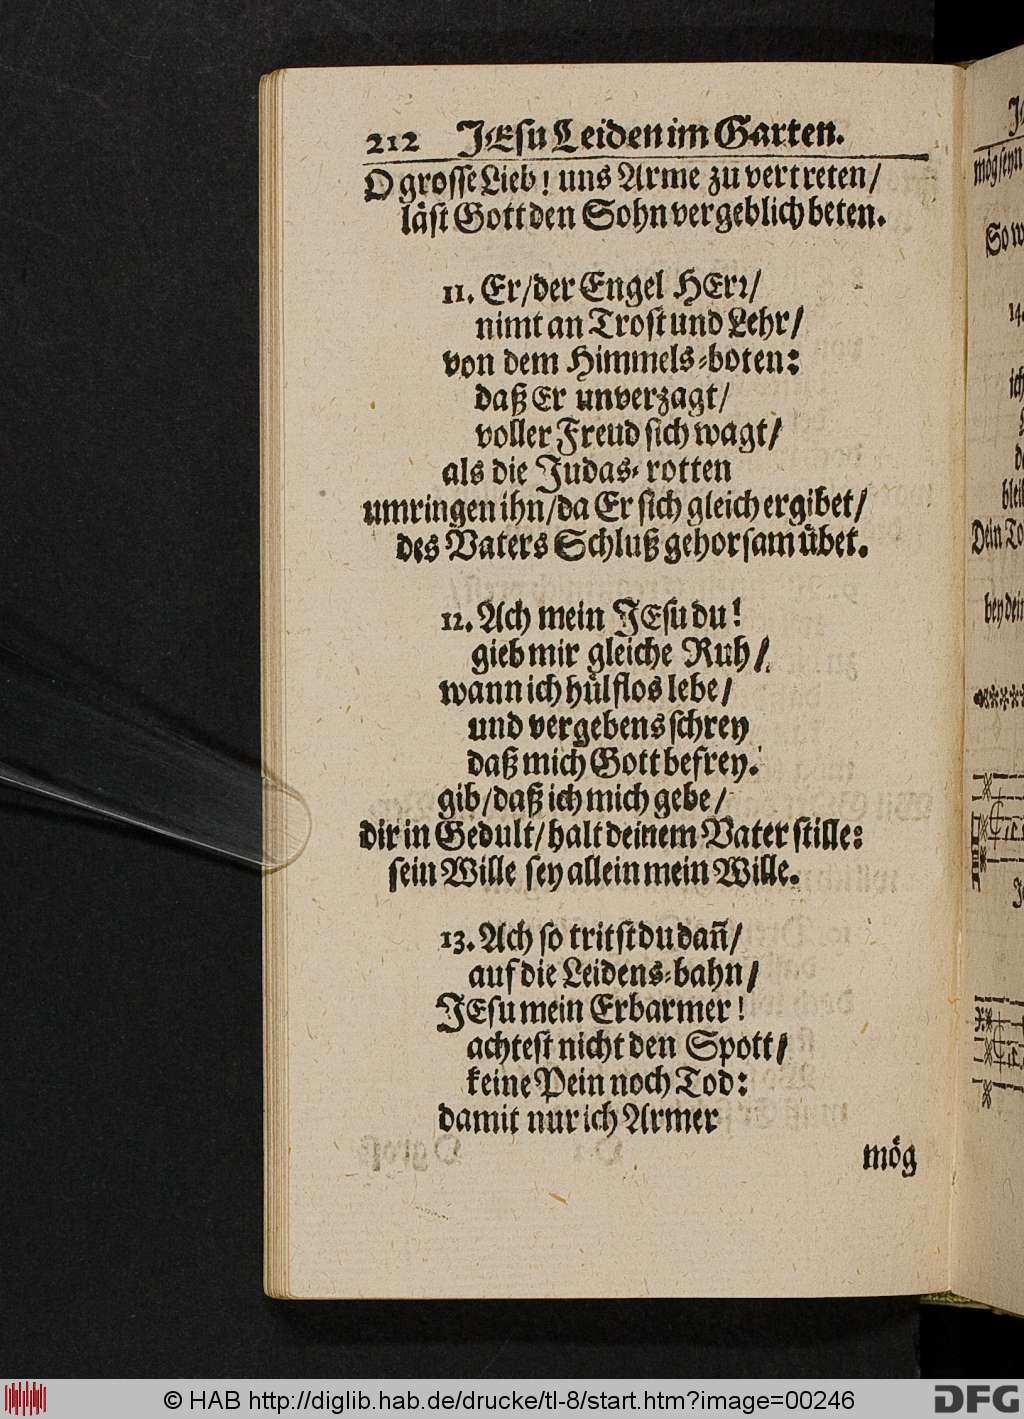 212 JEsu Leiden im Garten.
O grosse Lieb! uns Arme zu vertreten/
läst Gott den Sohn vergeblich beten.
11. Er/der Engel HErr/
nimt an Trost und Lehr/
von dem Himmels-boten:
daß Er unverzagt/
voller Freud sich wagt/
als die Judas-rotten
umringen ihn/da Er sich gleich ergibet/
des Vaters Schluß gehorsam übet.
12. Ach mein JEsu du!
gieb mir gleiche Ruh/
wann ich hülflos lebe/
und vergebens schrey
daß mich Gott befrey.
gib/daß ich mich gebe/
dir in Gedult/halt deinem Vater stille:
sein Wille sey allein mein Wille.
13. Ach so tritst du dañ/
auf die Leidens-bahn/
JEsu mein Erbarmer!
achtest nicht den Spott/
keine Pein noch Tod:
damit nur ich Armer
mög
mög seyn
So w
14.
ich
blei
Dein To
bey dein
© HAB http://diglib.hab.de/drucke/tl-8/start.htm?image=00246
DFG